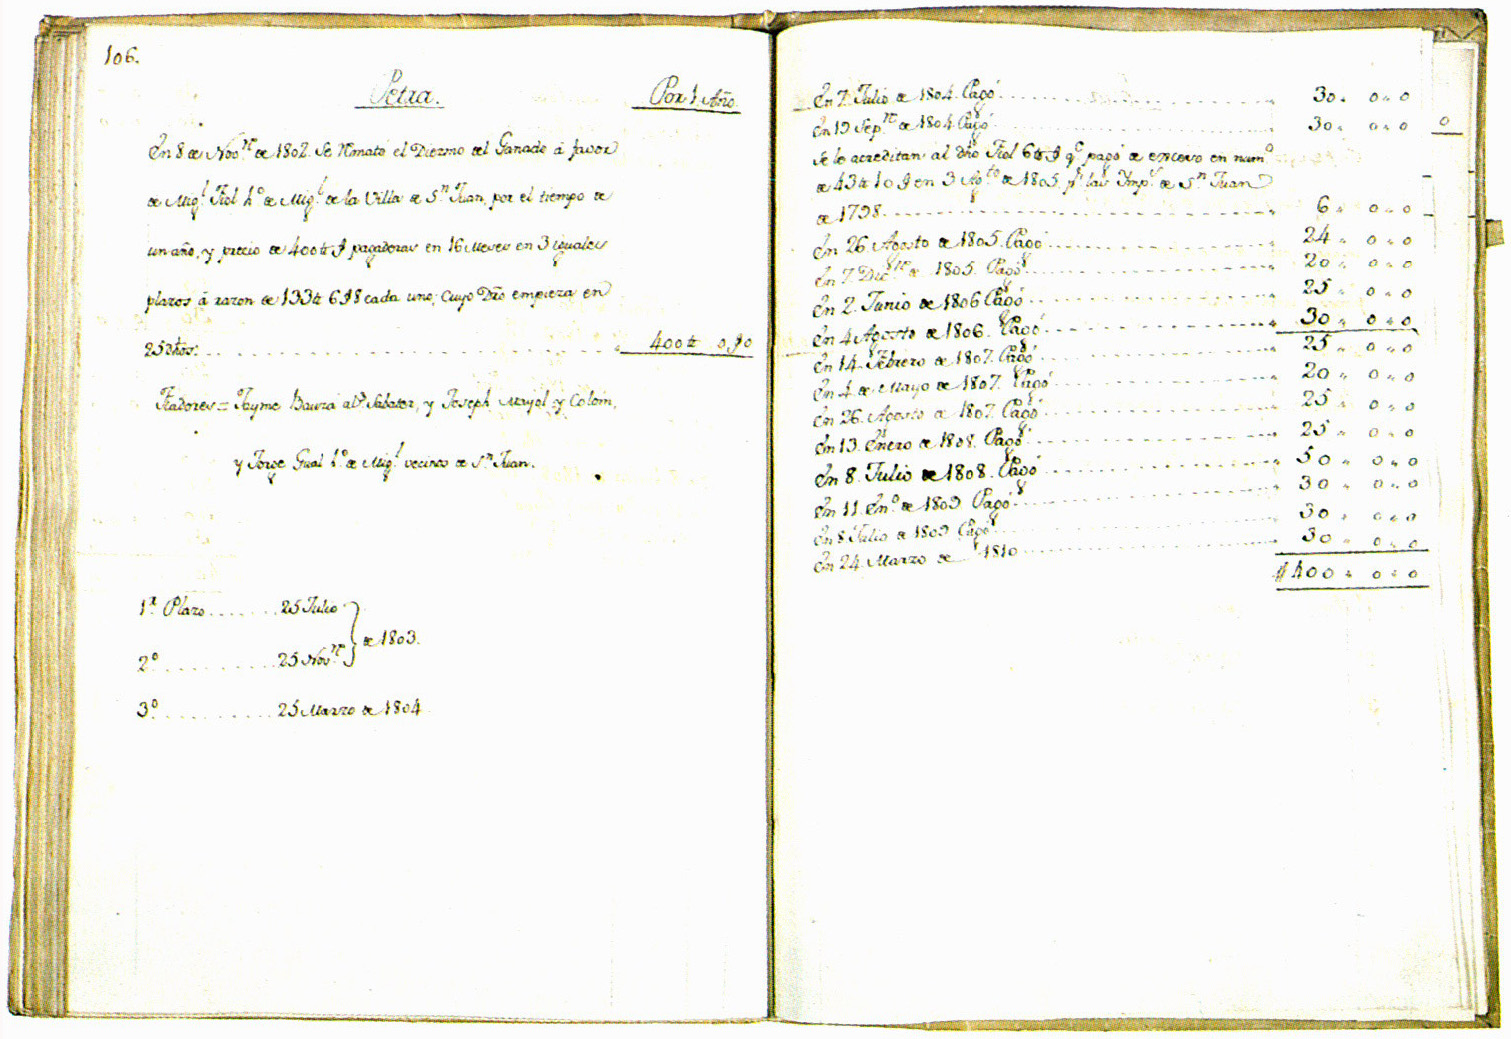 106.
Petra.
Por 1 Año.
En 8 de Nov.re de 1802. Se Rmató el Diezmo del Ganado á favor
de Mig.l Fiol h.o de Mig.l de la Villa de S.n Juan, por el tiempo de
un año, y precio de 400 ℔ pagaderas en 16 Meses en 3 iguales
plazos á razon de 133 ℔ 6 8 cada uno; Cuyo Dro empieza en
25 dhos:
400 ℔ 0 0
Fiadores = Jayme Bauza al.s Sabater, y Joseph Mayol y Colom,
y Jorge Gual h.o de Mig.l vecinos de S.n Juan.
1.r Plazo ........ 25 Julio
2.o ........... 25 Nov.re
de 1803.
3.o ........... 25 Marzo de 1804
En 7. Julio de 1804. Pagó ........ 30 „ 0 „ 0
En 19 Sep.re de 1804. Pagó ........ 30 „ 0 „ 0
0
Se le acreditan al dho Fiol 6 ℔ q.e pagó de exceso en num.o
de 43 ℔ 10 en 3 Ag.to de 1805. p.r las Ymp.s de S.n Juan
de 1798 ........ 6 „ 0 „ 0
En 26. Agosto de 1805. Pagó ........ 24 „ 0 „ 0
En 7. Dic.re de 1805. Pagó ........ 20 „ 0 „ 0
En 2. Junio de 1806 Pagó ........ 25 „ 0 „ 0
En 4 Agosto de 1806. Pagó ........ 30 „ 0 „ 0
En 14 Febrero de 1807. Pagó ........ 25 „ 0 „ 0
En 4 de Mayo de 1807. Pagó ........ 20 „ 0 „ 0
En 26. Agosto de 1807. Pagó ........ 25 „ 0 „ 0
En 13. Enero de 1808. Pagó ........ 25 „ 0 „ 0
En 8. Julio de 1808. Pagó ........ 50 „ 0 „ 0
En 11. En.o de 1809 Pagó ........ 30 „ 0 „ 0
En 8 Julio de 1809 Pagó ........ 30 „ 0 „ 0
En 24. Marzo de 1810 ........ 30 „ 0 „ 0
400 „ 0 „ 0